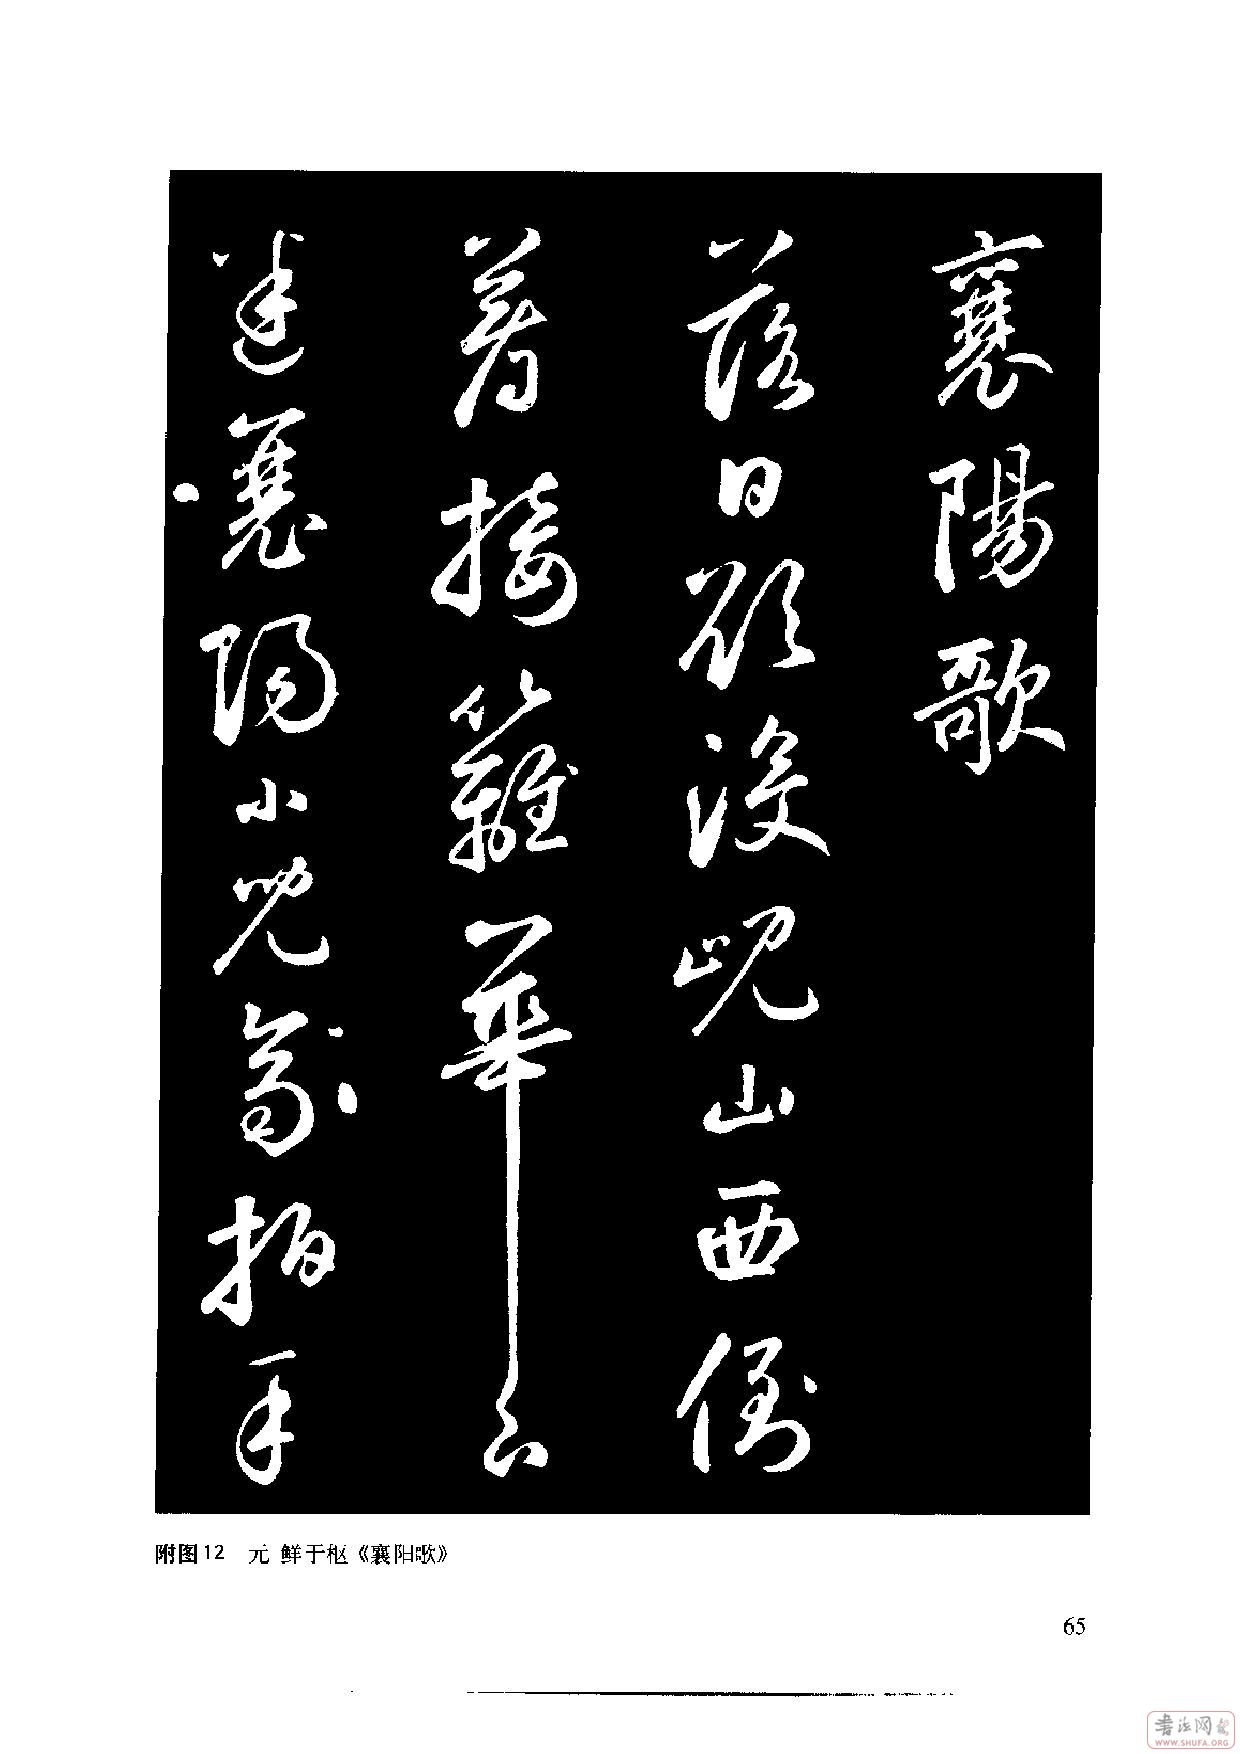 襄陽歌
落日欲没峴山西倒
著接籬華下
迷襄陽小兒齊拍手
附图12 元 鲜于枢《襄阳歌》
65
書法网
WWW.SHUFA.ORG